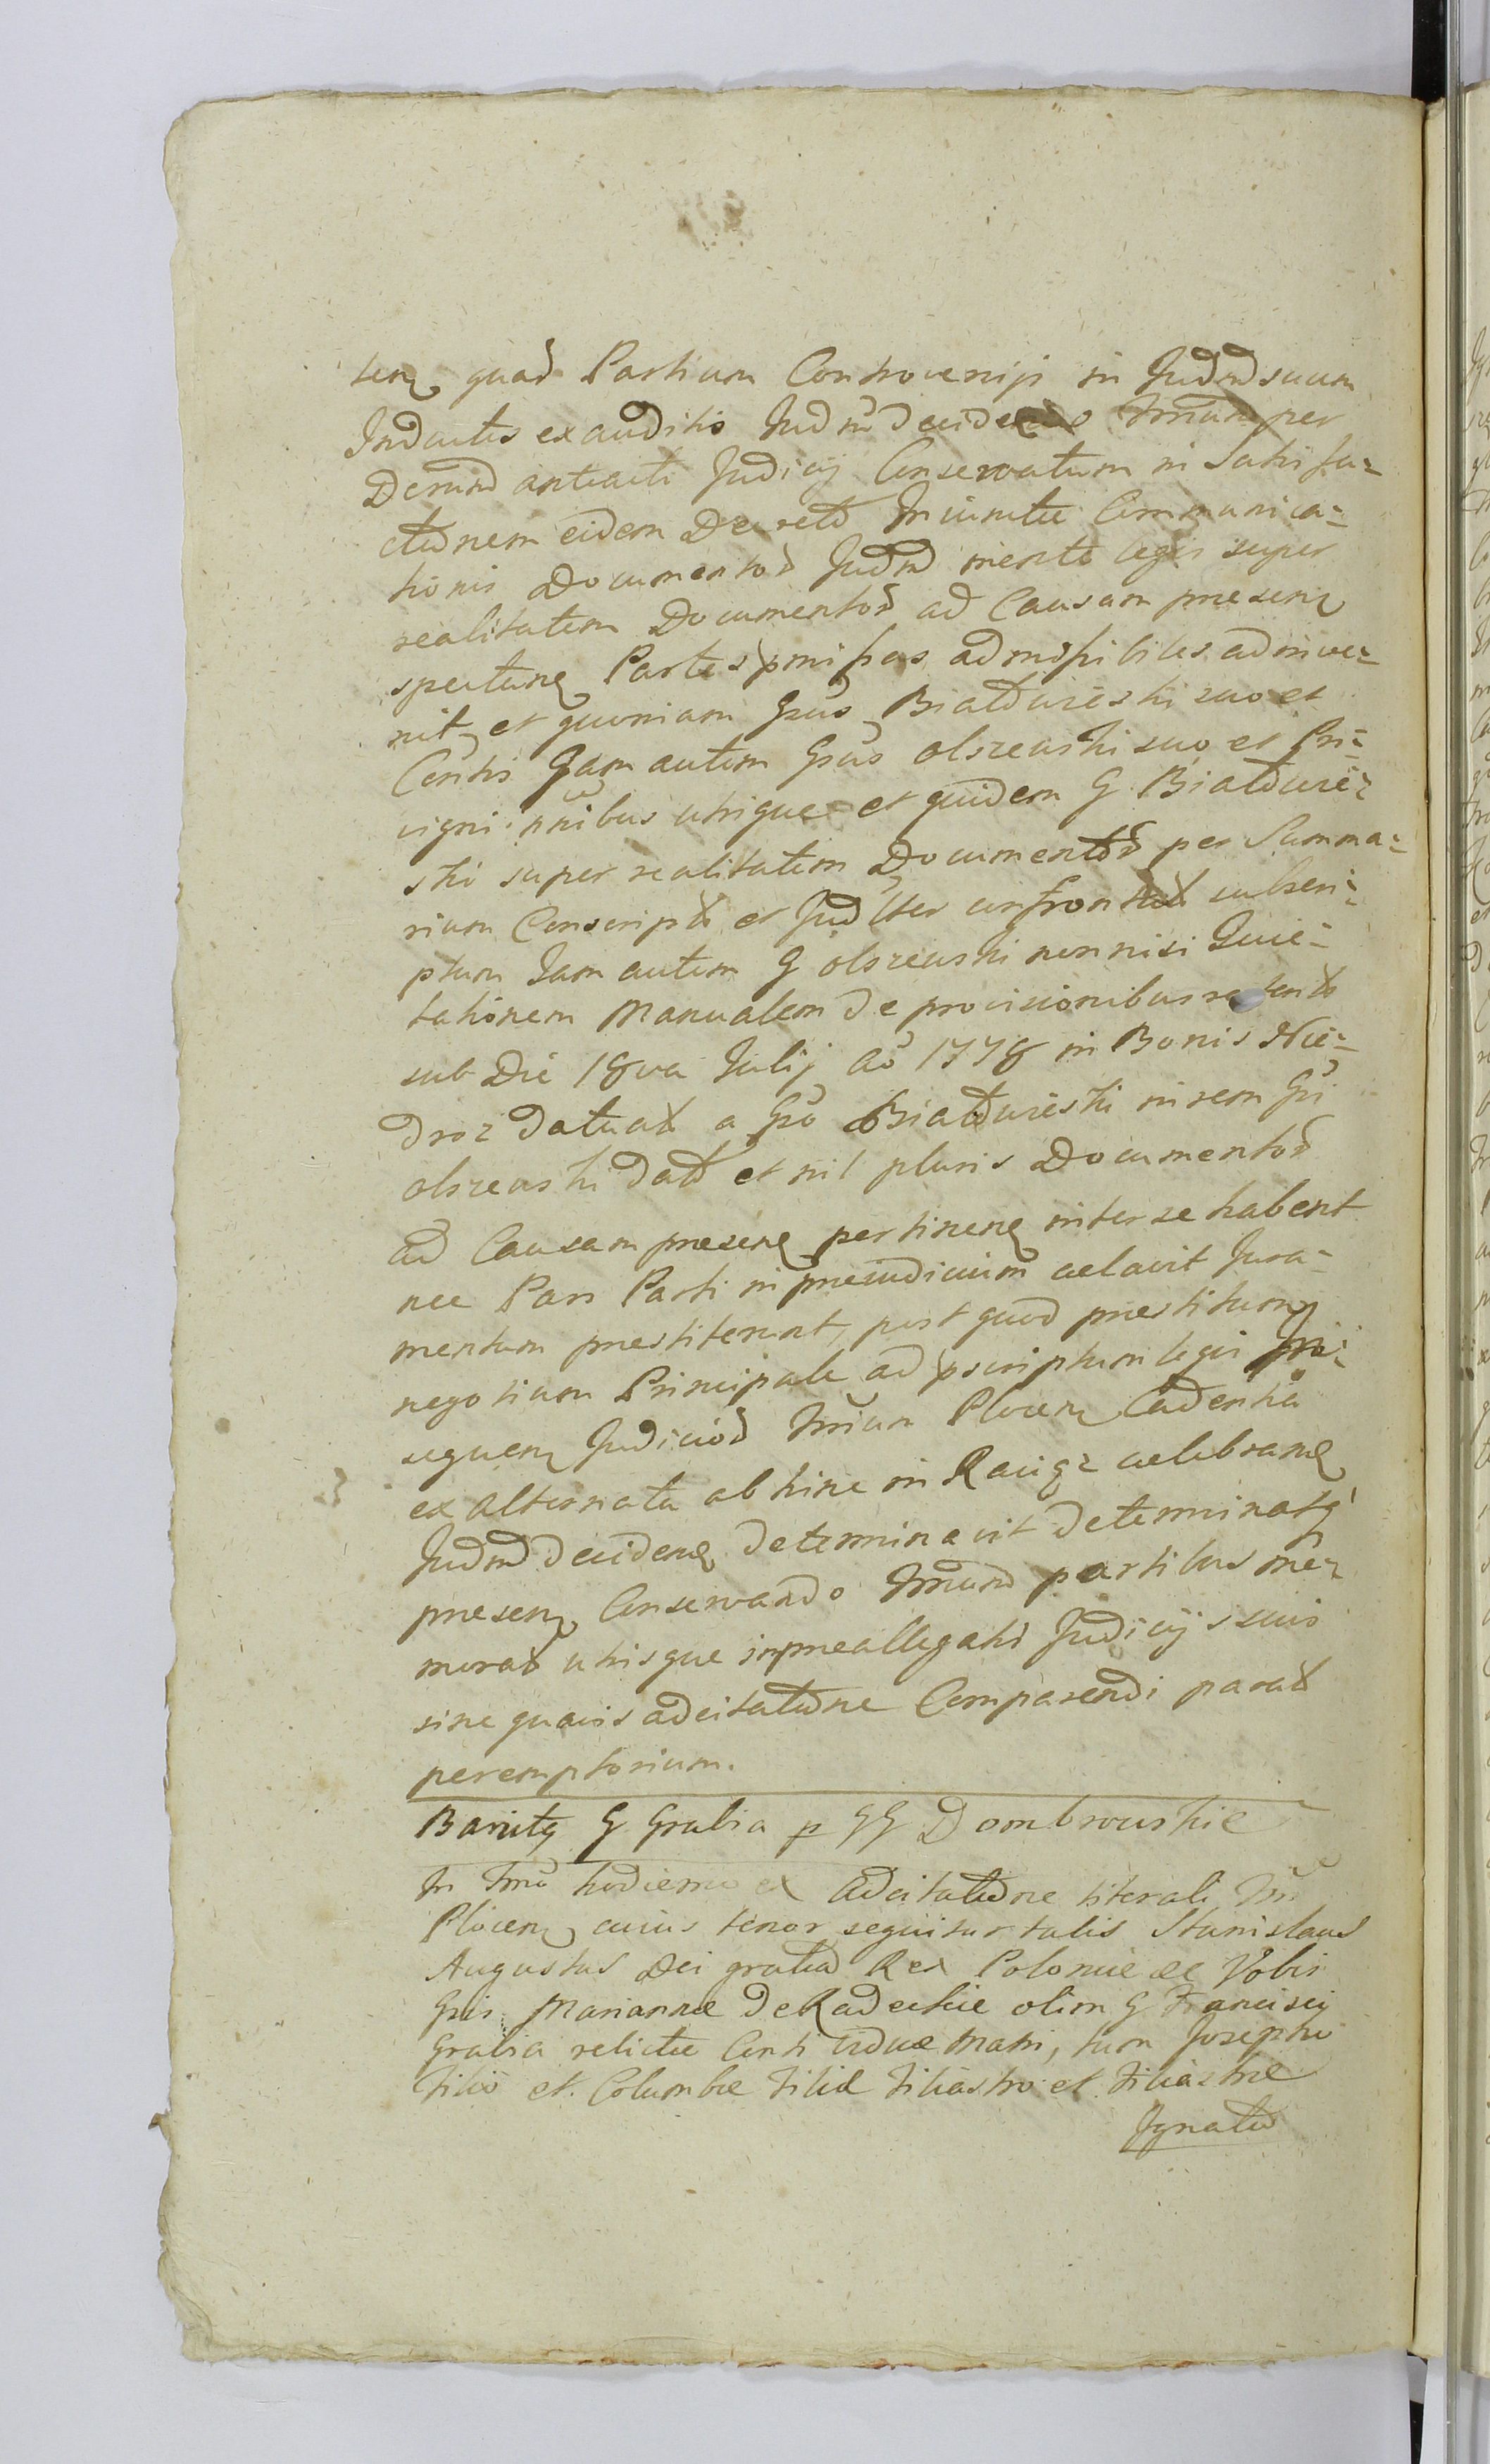 tem quad Partium Controversiji in Judm suum
Inductis exauditis Judm Tmum per
Decrm anteacti Judicij Conservatum in Satisfa-
ctionem eidem Decreto Communica-
tionis Documentor Judm mente legis super
realitatem Documentor ad Causam presen
spectan Partes admissibiles adinve-
nit, et quoniam Gsus Białdurzeski suo et
Contis Jam autem Gsus olszewski suo et Pri-
vigni nnibus utrique et quidem G Białdurze-
ski super realitatem Documentor per Summa-
rium Conscript et Judlter subscri-
ptum Jam autem G olszewski non nisi Quie-
tationem Manualem de provisionibus
sub Die 18va Julij Ao 1778 in Bonis Nie-
droz a Gso Białdurzeski in rem Gsi
olszewski dat et nil pluris Documentor
ad Causam presen pertinen inter se habent
nec Pars Parti in preiudicium celavit Jura-
mentum prestiterunt, post quod prestitum
negotium Principale ad pscriptum legis pro-
sequen Judicior Tmum Plocen Cadentia
ex Alternata ab hinc in Raciąz celebran
Judm deciden determinavit determinatq
presen Conservando Tmum partibus me-
morat utrisque in preallegatis Judicijs suis
sine quavis adcitatione Comparendi parat
peremptorium.
Banita G Grabia p GG Dombrowskie
In Tmo hodierno ex Adcitatione literali Tm
Plocen cuius tenor sequitur talis Stanislaus
Augustus Dei gratia Rex Polonie &c Vobis
Gsis Marianne de Radeckie olim G Francisci
Grabia relicte Conti vidue Matri, tum Josepho
Filio et Columbe Filie Filiastro et Filiastre
Ignatio